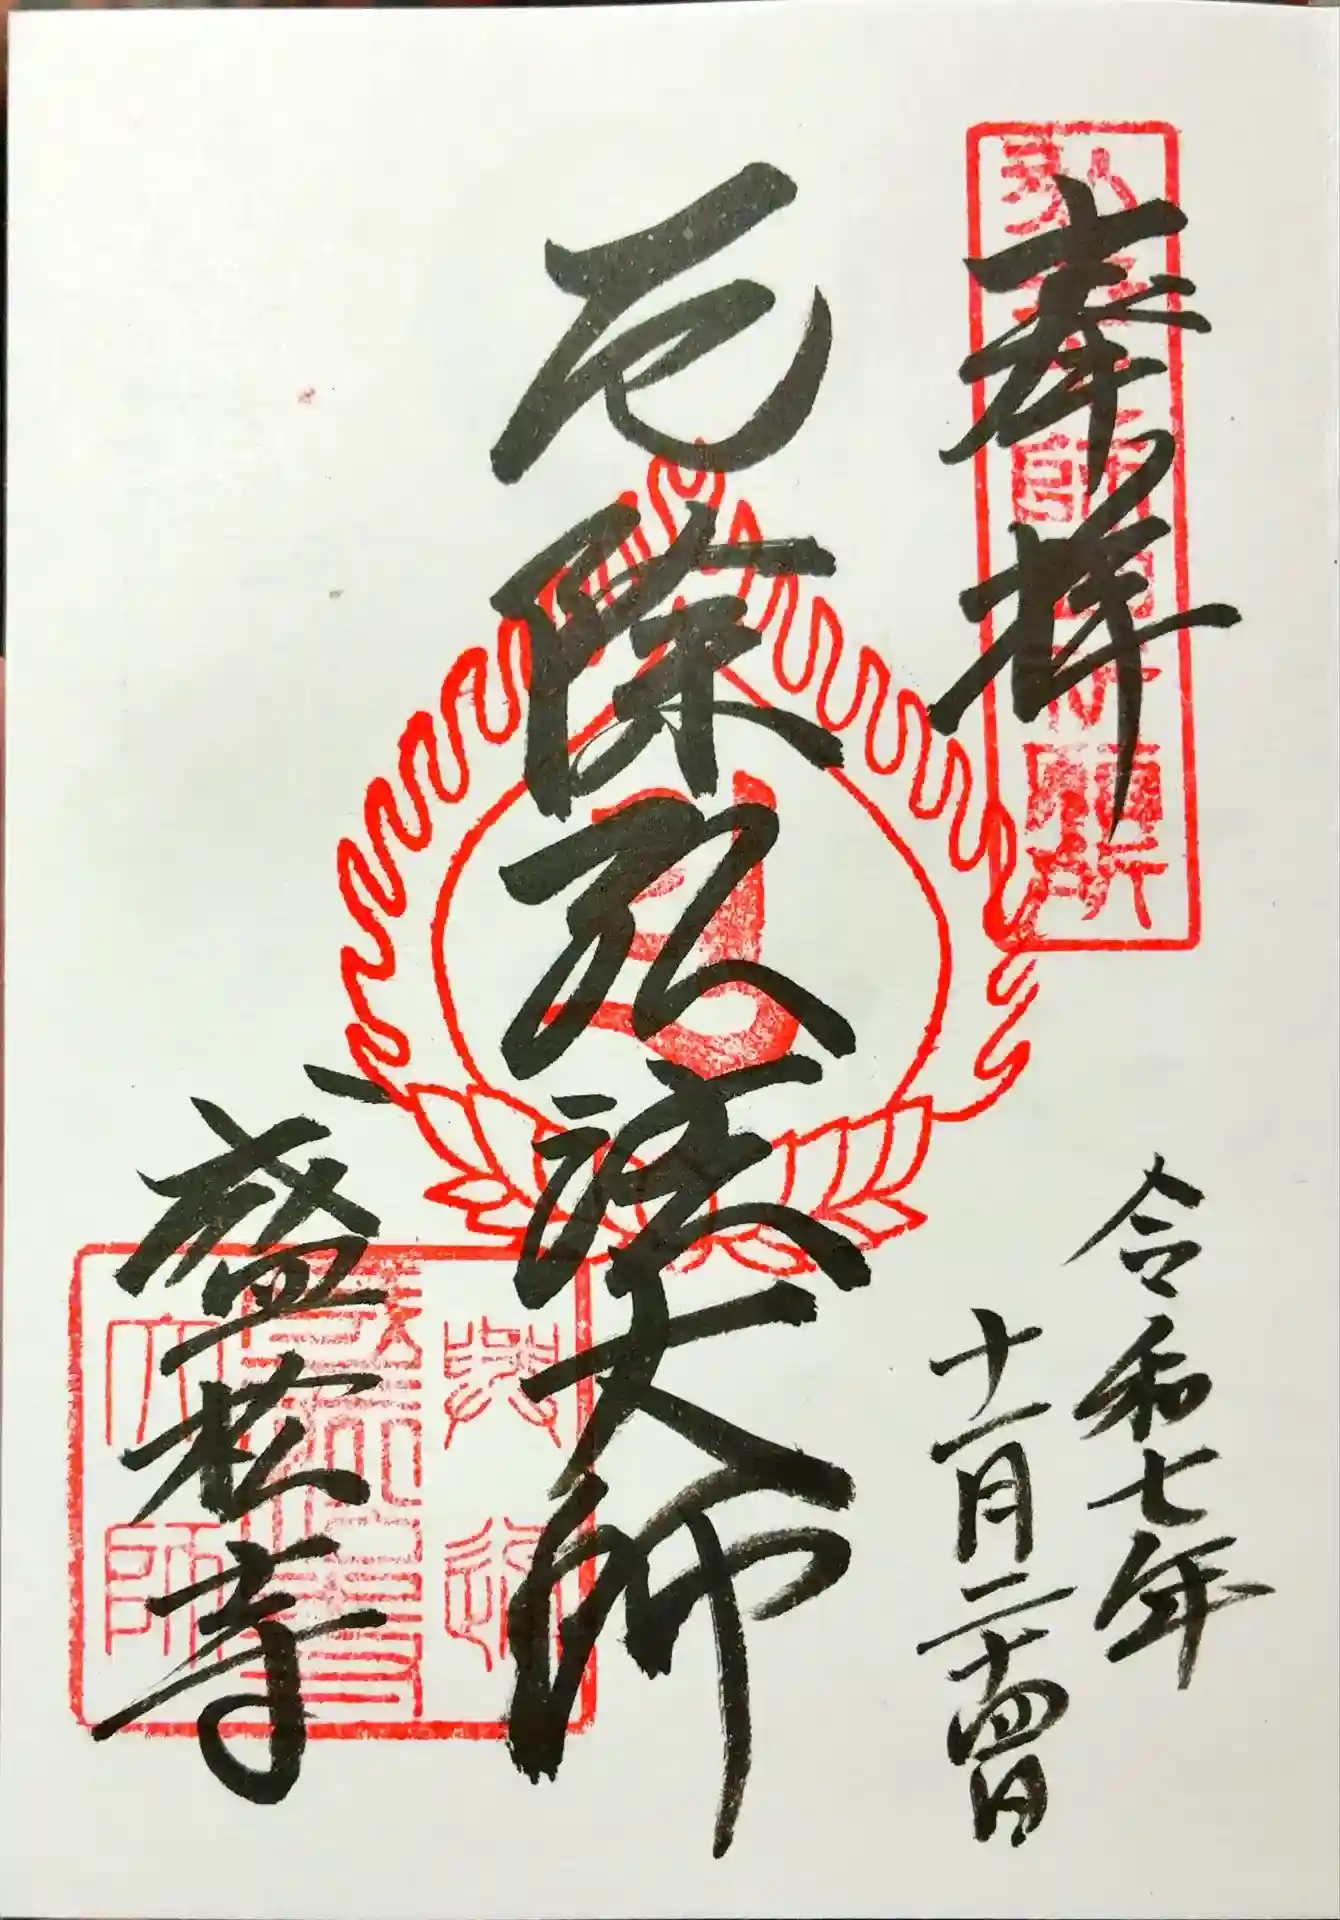 奉拝
令和七年
十一月二十四日
厄除弘法大師
盛松寺
興法
大師